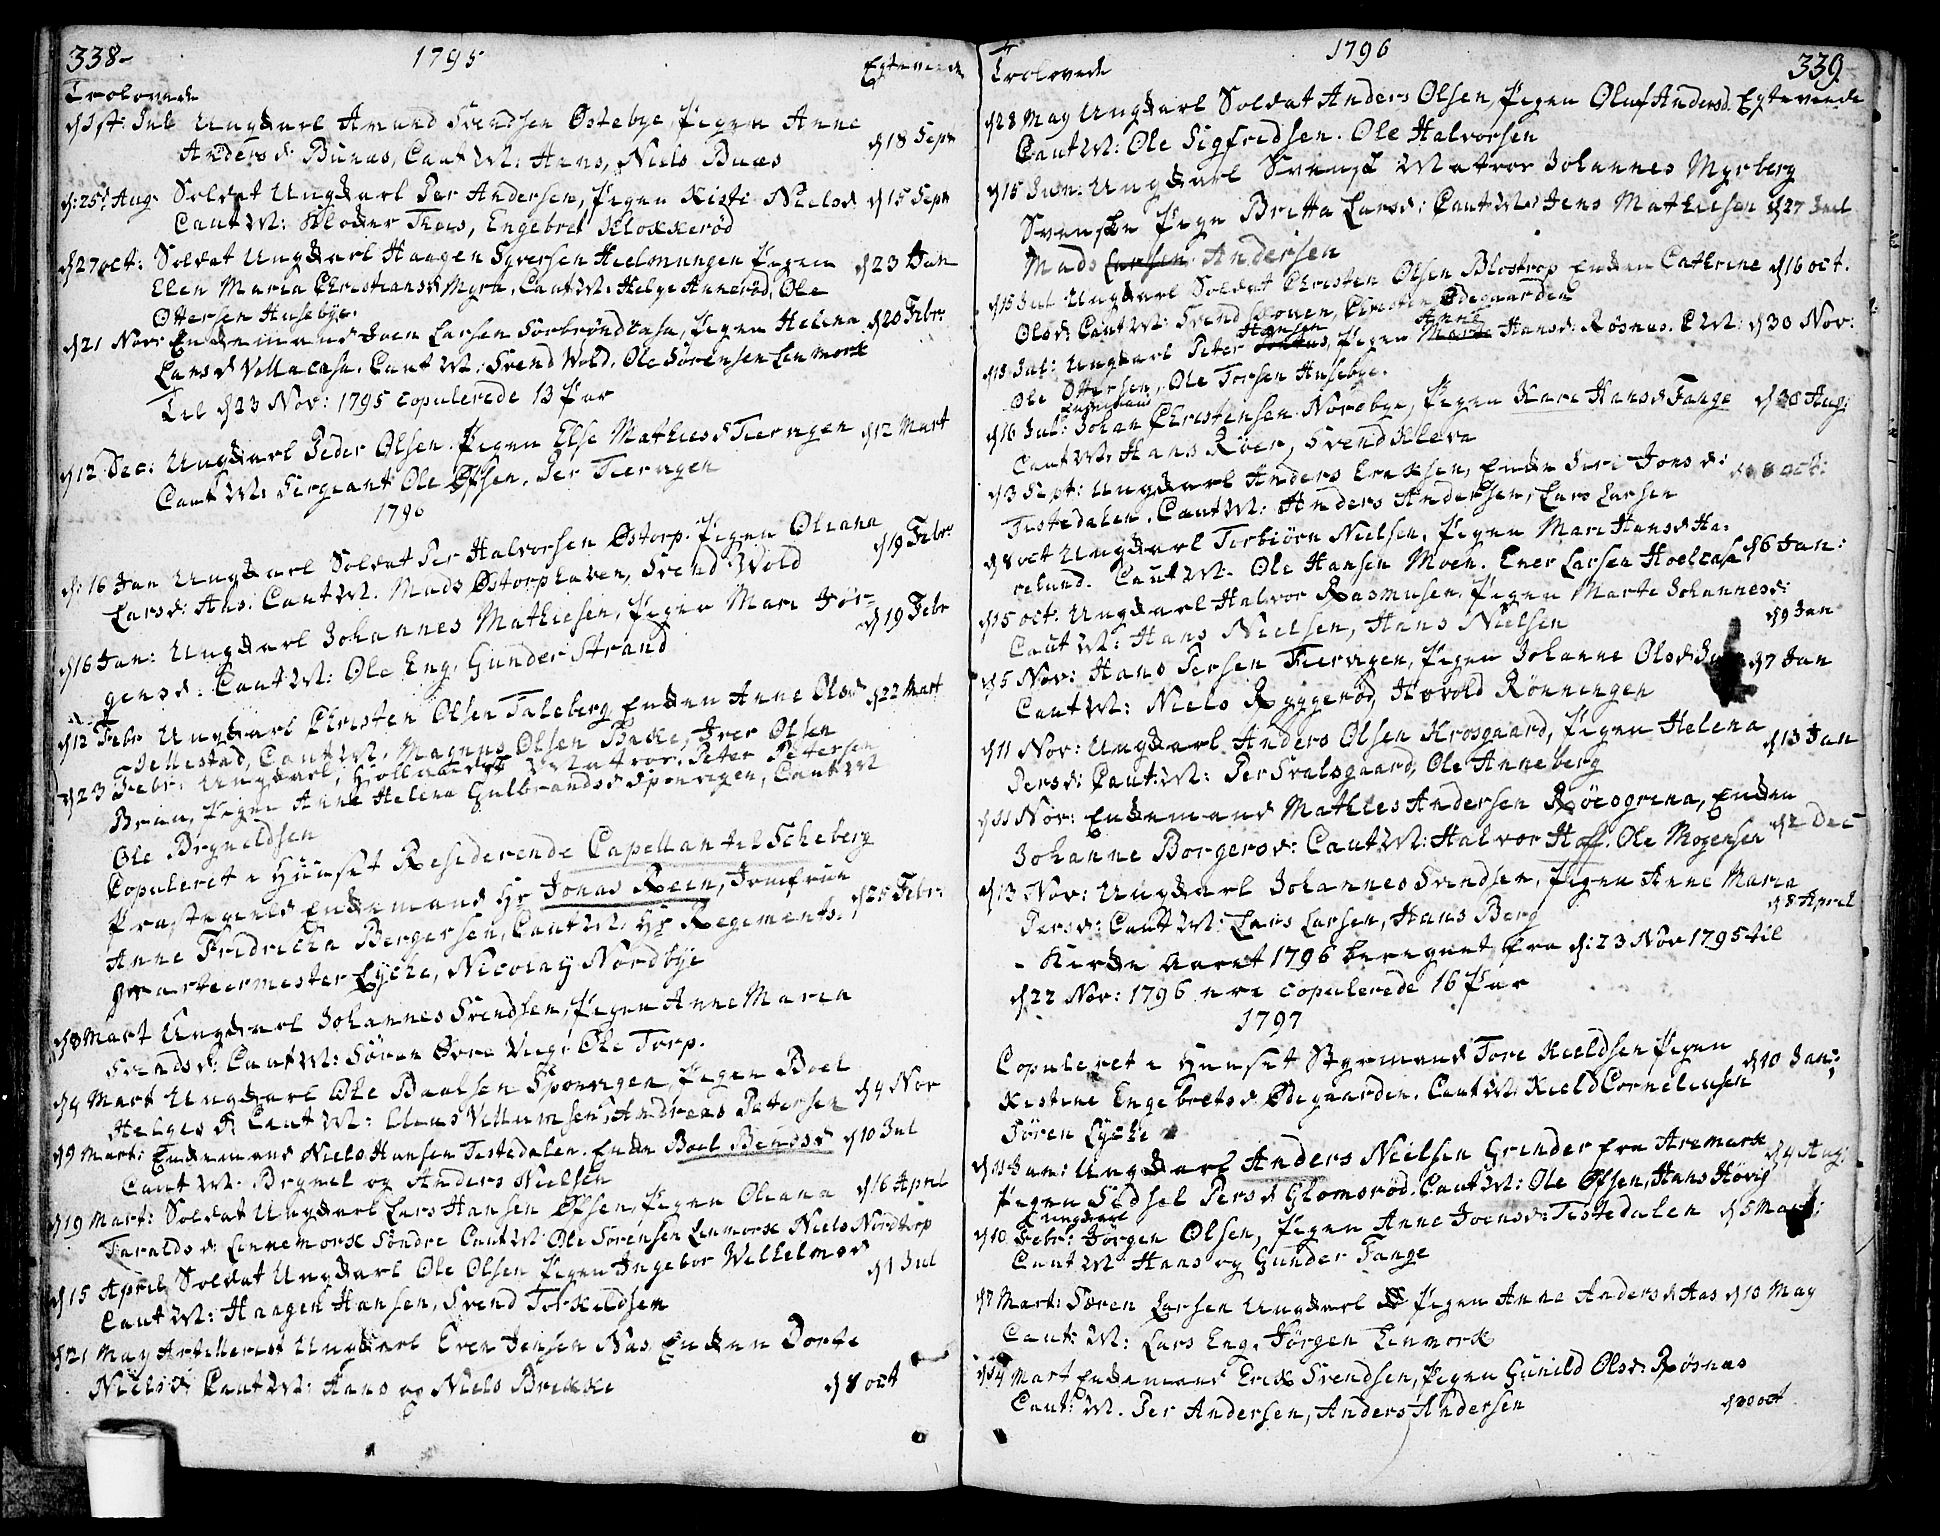 338
1795
Trolovede
Egteviede
d 1st: Juli Ungkarl Amund Svendsen Østebye, Pigen Anne
Andersd: Bunæs, Caut M: Hans, Niels Buæs d 18 Sept
d: 25: Aug. Soldat Ungkarl Per Andersen, Pigen Kisti Nielsd d 15 Sept
Caut M: Kloster Foss, Engebret Klokkerød
d 27 oct: Soldat Ungkarl Haagen Syversen Pigen d 23 Jan
Elen Maria Christiansd Myra, Caut M: Helge Annerød, Ole
Ottersen Husebye.
d 21 Nov: Enkemand Joen Larsen Torbrøndkasa, Pigen Helena d 20 Febr:
Larsd Vollacasa, Caut M: Svend Wold, Ole Sørensen Lenmork
Til d 23 Nov: 1795 copulerede 13 Par
d 12 Dec: Ungkarl Peder Olsen, Pigen Else Mathiesd Tiervigen d 12 Mart
Caut M: Sergeant Ole Ofsen, Per Tiervigen
1796
d: 16 Jan Ungkarl Soldat Per Halvorsen Østorp, Pigen Oleana d 19 Febr:
Larsd: Aas. Caut M. Mads Østorphaven, Svend Wold
d 16 Jan: Ungkarl Johannes Mathiesen, Pigen Mari Jør- d 19 Febr
gensd: Caut M: Ole Eng, Gunder Strand
d 12 Febr Ungkarl Christen Olsen Taleberg Enken Anne Olsd d 22 Mart
Jellestad, Caut M. Magnus Olsen Bakke, Iver Olsen
d 23 Febr: Ungkarl, Matros Peter Petersen
Brun, Pigen Anne Helena Gulbrandsd Sponvigen, Caut M
Ole Bryneldsen
Copuleret i Huuset Residerende Capellan til Scheberg
Præstegield Enkemand Hr Jonas Rein, Jomfrue d 25 Febr:
Anne Fridricha Bergersen, Caut M: Hr Regiments.
qvarteermester Lyche, Nicolay Nordbye
d 8 Mart Ungkarl Johannes Svendsen, Pigen Anne Maria
Svendsd: Caut M: Søren Øvre Veg, Ole Torp.
d 9 Mart Ungkarl Ole Paalsen Sponvigen, Pigen Boel
Helgesd: Caut M: Claus Vellumsen, Andreas Petersen d 9 Nov
d 9 Mart: Enkemand Niels Hansen Testedalen. Enken Boel Bendsd d 10 Jul
Caut M. Brynel og Anders Nielsen
d 19 Mart: Soldat Ungkarl Lars Hansen Ofsen, Pigen Oleana d 16 April
Taraldsd: Lennemork Søndre Caut M: Ole Sørensen Lenmork Niels Nordtorp
d 15 April Soldat Ungkarl Ole Olsen Pigen Ingebor Welhelmsd d 1 Jul
Caut M: Haagen Hansen, Svend Torkildsen
d 21 May Artillerist Ungkarl Even Jensen Næs Enken Dorte
Nielsd: Caut M: Hans og Niels Brekke d 8 oct
1796
339
Trolovede
Egteviede
d 28 May Ungkarl Soldat Anders Olsen, Pigen Oluf Andersd.
Caut M: Ole Sigfredsen. Ole Halvorsen
d 15 Jun: Ungkarl Svensk Matros Johannes Myrberg
Svenske Pige Britta Larsd: Caut M: Jens Mathiesen d 27 Jul
Mads Larsen Andersen
d 15 Jul Ungkarl Soldat Christen Olsen Blostrop Enken Cathrine d 16 oct.
Olsd: Caut M: Svend Skoven, Christen Ødegaarden
d 13 Jul: Ungkarl Peter Hansen, Pigen Marte Anne Hansd: Røsnæs. C M: d 30 Nov:
Ole Ottersen, Ole Torsen Husebye.
d 16 Jul: Enkemand Johan Christensen Nordbye, Pigen Kari Hansd Fange d 30 Aug:
Caut M: Hans Røer, Svend Kleva
d 3 Sept: Ungkarl Anders Eriksen, Enken Siri Jonsd: d 8 oct:
Testedalen. Caut M: Anders Andersen, Lars Larsen
d 8 oct Ungkarl Torbiørn Nielsen, Pigen Mari Hansd Ha-
relund. Caut M. Ole Hansen Moen. Ener Larsen Hoelcasa d 6 Jan:
d 15 oct: Ungkarl Halvor Rasmusen, Pigen Marte Johannesd:
Caut M: Hans Nielsen, Hans Nielsen d 9 Jan
d 5 Nov: Hans Persen Tiervigen, Pigen Johanne Olsd d 7 Jan
Caut M: Niels Ryggerød, Hovold Rønningen
d 11 Nov: Ungkarl Anders Olsen Krosgaard, Pigen Helena
Persd: Caut M: Per Svalsgaard, Ole Anneberg d 13 Jan
d 11 Nov: Enkemand Mathies Andersen Røesgrena, Enken
Johanne Borgersd: Caut M: Halvor Hoff. Ole Mogensen d 2 Dec
d 13 Nov: Ungkarl Johannes Svendsen, Pigen Anne Maria
Persd: Caut M: Lars Larsen, Hans Berg d 8 April
- Kirke Aaret 1796 beregnet fra d: 23 Nov 1795 til
d 22 Nov: 1796 ere copulerede 16 Par
1797
Copuleret i Huuset Styrmand Tore Kieldsen Pigen d 10 Jan:
Kistine Engebretsd Ødegaarden. Caut M: Kield Corneliusen
Søren Lyche
d 11 Jan: Ungkarl Anders Nielsen Grinder fra Aremark d 4 Aug:
Pigen Sidsel Persd Glomsrød. Caut M: Ole Ofsen, Hans Hövig
d 10 Febr: Ungkarl Jørgen Olsen, Pigen Anne Joensd: Testedalen d 5 Mart:
Caut M Hans og Gunder Fange
d 7 Mart: Søren Larsen Ungkarl Pigen Anne Andersd Aas d 10 May
Caut: M: Lars Eng, Jørgen Lenmork
d 14 Mart Enkemand Erik Svendsen, Pigen Gunild Olsd: Røsnæs
Caut: M. Per Andersen, Anders Andersen d 20 oct